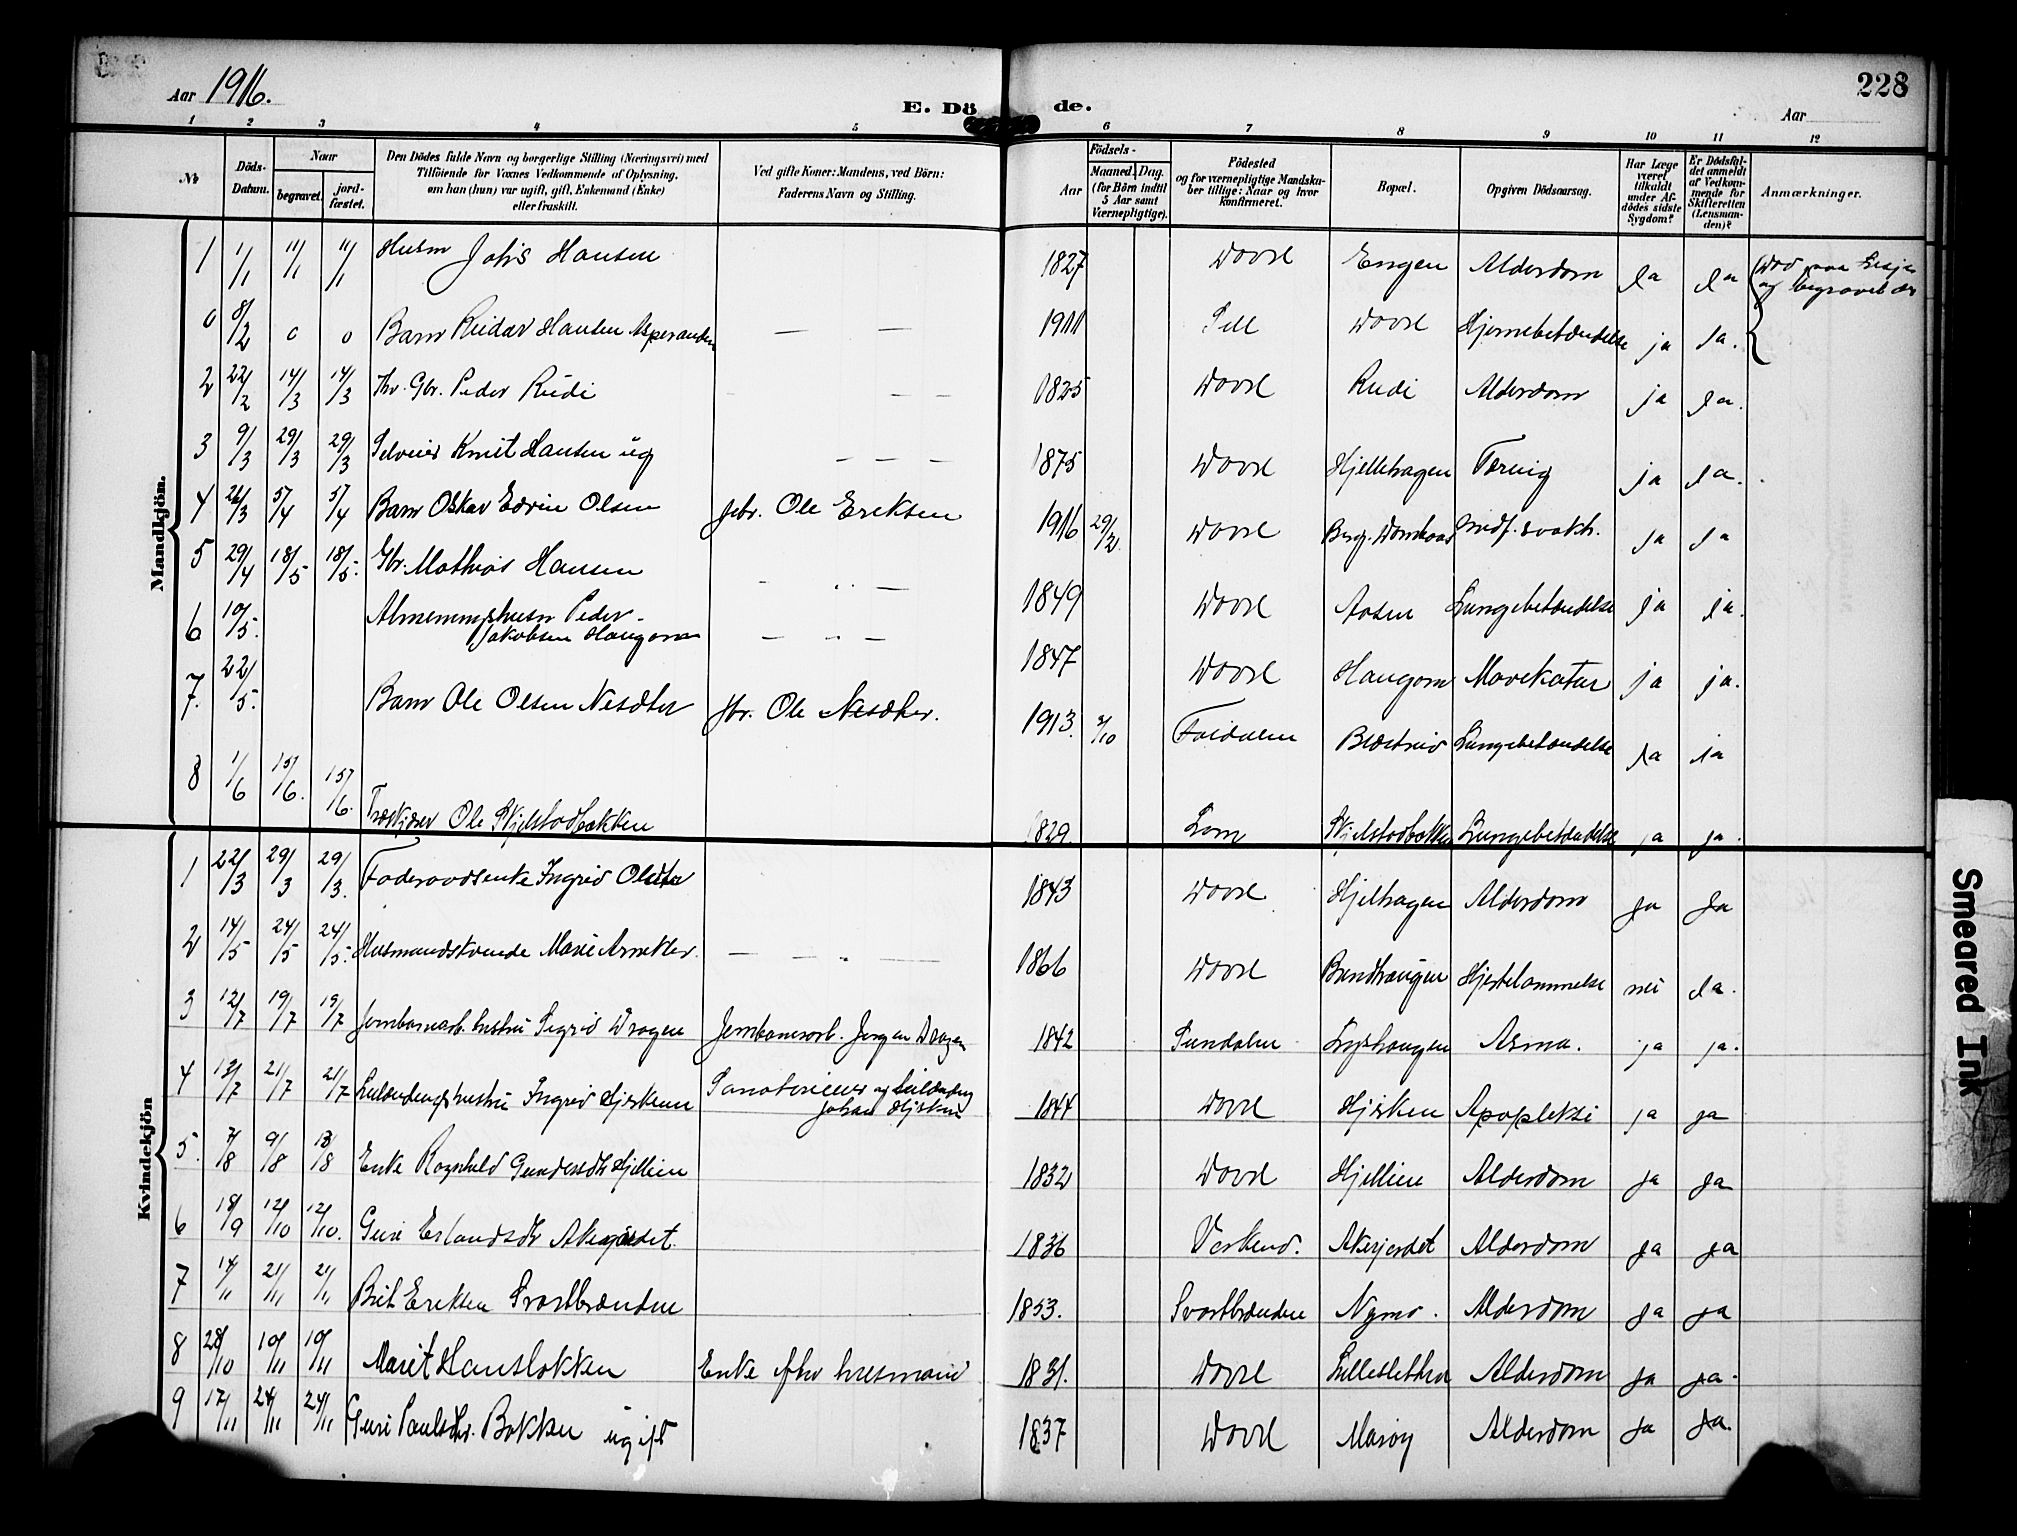 Aar 1916.
E. Dö de.
Aar
228
1 2 3 4 5 6 7 8 9 10 11 12
No
Döds-Datum.
Naar
begravet.
jord-fæstet.
Den Dödes fulde Navn og borgerlige Stilling (Næringsvei) med
Tilföiende for Voxnes Vedkommende af Oplysning,
om han (hun) var ugift, gift, Enkemand (Enke)
eller fraskilt.
Ved gifte Koner: Mandens, ved Börn:
Faderens Navn og Stilling.
Födsels-
Aar
Maaned. Dag.
(for Börn indtil
5 Aar samt
Værnepligtige).
Födested
og for værnepligtige Mandsku-
ber tillige: Naar og hvor
konfirmeret.
Bopæl.
Opgiven Dödsaarsag.
Har Læge
været
tilkaldt
under Af-
dödes sidste
Sygdom?
Er Dödsfal-
det anmeldt
af Vedkom-
mende for
Skifteretten
(Lensman-
den)?
Anmærkninger.
Mandkjön.
1 1/1 11/1 11/1 Husm Johs Hansen 1827 Dovre Engen Alderdom Ja Ja
og begravet der
0 8/2 0 0 Barn Reidar Hansen — — 1911 Sell Dovre Hjernebetændelse ja Ja.
2 22/2 14/3 14/3 Fhv. Gbr. Peder Rudi — — 1825 Dovre Rudi Alderdom ja Ja.
3 9/3 29/3 29/3 Selveier Knut Hansen ug — — — 1875 Dovre Hjellehagen Tæring ja Ja.
4 26/3 5/4 5/4 Barn Oskar Edvin Olsen gbr. Ole Eriksen 1916 29/2 Dovre medf. svakh. Ja Ja
5 29/4 18/5 18/5. Gbr. Mathias Hansen 1849 Dovre Lungebetændelse ja ja.
6 10/5. Almenningshusm Peder
Jakobsen Haugom — — 1847 Dovre Haugom Mavekatar ja ja.
7. 22/5. Barn Ole Olsen Nesæter Gbr. Ole Nesæter. 1913. Lungebetændelse Ja ja
8 1/6 15/6. 15/6. Træskjærer Ole Skjelstadbakken 1829. Lom Skjelstadbakken Lungebetændelse ja ja.
Kvindekjön
1 22/3 29/3 29/3. Foderaadsenke Ingrid Olsdtr 1843 Dovre Hjelhagen Alderdom ja Ja
2 14/5 24/5 24/5. Husmandskvinde Mari 1866 Dovre Hjertelammelse nei Ja.
3 12/7 19/7 19/7 Jernbanearb. hustru Sigrid Dragen Jernbanearb. Jørgen Dragen 1842 Sundalen Asma. ja ja.
4 13/7 21/7 21/7 Ingrid Hjerkinn
Johan Hjerkinn 1844 Dovre Hjerkin Apopleksi ja ja
5. 2/8 9/8 13/8 Enke Ragnhild Hjellien 1832 Dovre Hjellien Alderdom ja ja
6 18/9 12/10 12/10. Guri Erlandsdtr Akerjordet. 1836 Akerjordet Alderdom ja ja
7 14/11 21/11 21/11 Brit Eriksen Svartbrænden 1853. Svartbrænden Nymo. Alderdom ja ja
8 28/10 10/11 10/11 Marit Hansløkken Enke efter husmand 1831. Dovre Alderdom ja ja.
9 17/11 24/11 24/11 Guri Paulsdtr. Bakken ugift 1837 Dovre Alderdom ja ja.
Smeared Ink